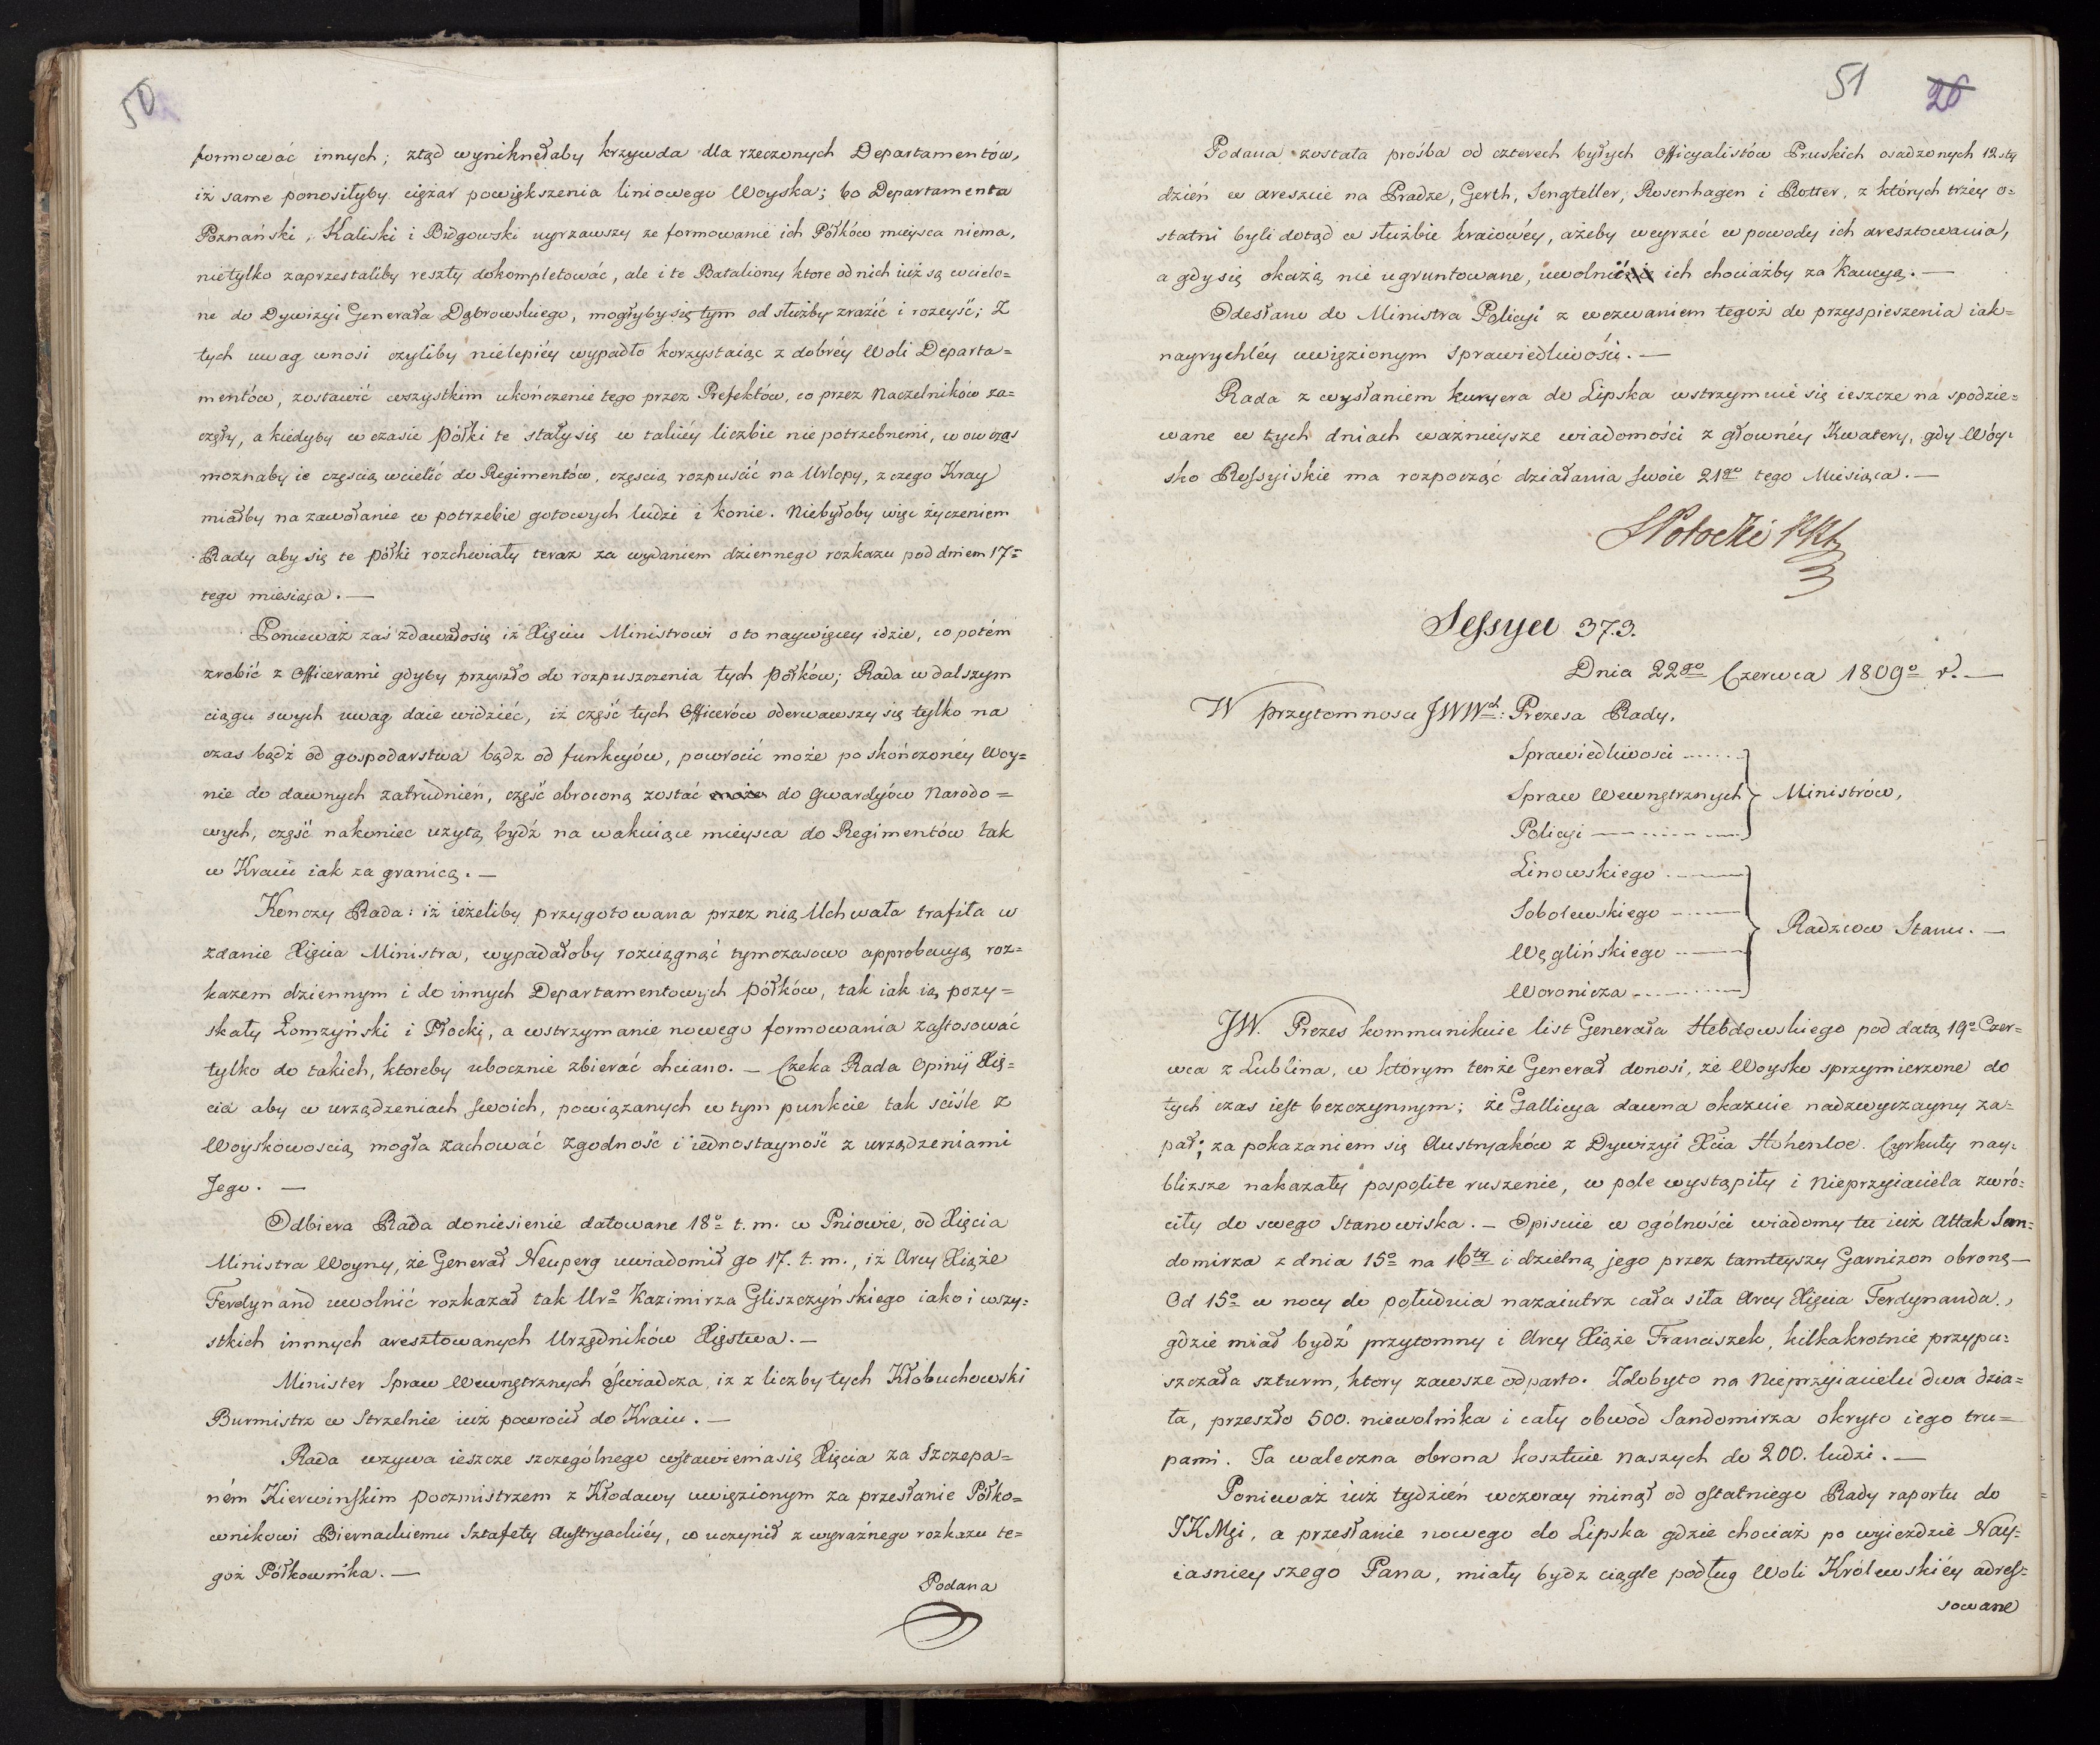 50
formować innych; ztąd wyniknęłaby krzywda dla rzeczonych Departamentów,
iż same ponosiłyby ciężar powiększenia liniowego Woyska; bo Departamenta
Poznański, Kaliski i Bidgowski uyrzawszy ze formowanie ich Półków mieysca niema,
nietylko zaprzestaliby reszty dokompletować, ale i te Bataliony ktore od nich iuż są wcielo=
ne do Dywizyi Generała Dąbrowskiego, mogłyby się tym od służby zrazić i rozeyść; Z
tych uwag wnosi czyliby nielepiéy wypadło korzystaiąc z dobréy Woli Departa=
mentów, zostawić wszystkim ukończenie tego przez Prefektów, co przez Naczelników za=
częły, a kiedyby w czasie półki te stały się w takiéy liczbie niepotrzebnemi, w ow czas
moznaby ie częscią wcielić do Regimentów, częscią rozpuscić na Urlopy, z czego Kray
miałby na zawołanie w potrzebie gotowych ludzi i konie. Niebyłoby więc życzeniem
Rady aby się te półki rozchwiały teraz za wydaniem dziennego rozkazu pod dniem 17=
tego miesiąca. —
Ponieważ zaś zdawało się iż Xięciu Ministrowi o to naywięcey idzie, co potém
zrobić z Officerami gdyby przyszło do rozpuszczenia tych półków; Rada w dalszym
ciągu swych uwag daie widzieć, iż część tych Officerów oderwawszy się tylko na
czas bądź od gospodarstwa bądz od funkcyów, powrocić może po skończonéy Woy=
nie do dawnych zatrudnień, część obroconą zostać może do Gwardyów Narodo=
wych, część nakoniec uzytą bydź na wakuiące mieysca do Regimentów tak
w Kraiu iak za granicą. —
Konczy Rada: iż ieżeliby przygotowana przez nią Uchwała trafiła w
zdanie Xięcia Ministra, wypadałoby rozciągnąć tymczasowo approbacyą roz=
kazem dziennym i do innych Departamentowych półków, tak iak ią pozy=
skały Łomzyński i Płocki, a wstrzymanie nowego formowania zastosować
tylko do takich, ktoreby ubocznie zbierać chciano. — Czeka Rada Opinij Xię=
cia aby w urządzeniach swoich, powiązanych w tym punkcie tak sciśle z
Woyskowoscią mogła zachować zgodność i iednostayność z urządzeniami
Jego. —
Odbiera Rada doniesienie datowane 18º t. m. w Pniowie, od Xięcia
Ministra Woyny, że Generał Neuperg uwiadomił go 17. t. m., iż Arcy Xiąże
Ferdynand uwolnić rozkazał tak Urº Kazimirza Gliszczyńskiego iako i wszy=
stkich innnych aresztowanych Urzędników Xięstwa. —
Minister Spraw Wewnętrznych oświadcza, iz z liczby tych Kłobuchowski
Burmistrz w Strzelnie iuż powrocił do Kraiu. —
Rada wzywa ieszcze szczególnego wstawienia się Xięcia za Szczepa=
ném Kierwinskim poczmistrzem z Kłodawy uwięzionym za przesłanie Półko=
wnikowi Biernackiemu Sztafety Austryackiéy, co uczynił z wyraźnego rozkazu te=
goż Półkownika. —
Podana
51
26
Podana została prośba od czterech byłych Officyalistów Pruskich osadzonych 12sty
dzień w areszcie na Pradze, Gerth, Sengteller, Rosenhagen i Rotter, z których trzéy o=
statni byli dotąd w służbie kraiowéy, ażeby weyrzeć w powody ich aresztowania,
a gdy się okażą nie ugruntowane, uwolnić ich chociażby za Kaucyą. —
Odesłano do Ministra Policyi z wezwaniem tegoż do przyspieszenia iak=
nayrychléy uwięzionym sprawiedliwości. —
Rada z wysłaniem kuryera do Lipska wstrzymuie się ieszcze na spodzie=
wane w tych dniach ważnieysze wiadomości z głownéy Kwatery, gdy Woy=
sko Rossyiskie ma rozpocząć działania swoie 21go tego Miesiąca. —
SPotocki
Sessya 373.
Dnia 22go Czerwca 1809º r. —
W przytomnosci JWWch: Prezesa Rady.
Sprawiedliwosci
Spraw Wewnętrznych } Ministrów,
Policyi
Linowskiego
Sobolewskiego
Radzcow Stanu. —
Węglińskiego
Woronicza
JW. Prezes kommunikuie list Generała Hebdowskiego pod datą 19º Czer=
wca z Lublina, w którym tenże Generał donosi, że Woysko sprzymierzone do
tych czas iest bezczynnym; że Gallicya dawna okazuie nadzwyczayny za=
pał; za pokazaniem się Austryaków z Dywizyi Xcia Hohenloe. Cyrkuły nay=
bliższe nakazały pospolite ruszenie, w pole wystąpiły i Nieprzyiaciela zwró=
ciły do swego Stanowiska. — Opisuie w ogólności wiadomy tu iuż Attak San=
domirza z dnia 15º na 16ty i dzielną jego przez tamteyszy Garnizon obronę —
Od 15º w nocy do południa nazaiutrz cała siła Arcy Xięcia Ferdynanda,
gdzie miał bydź przytomny i Arcy Xiąże Franciszek, kilkakrotnie przypu=
szczała szturm, ktory zawsze odparto. Zdobyto na Nieprzyiacielu dwa dzia=
ła, przeszło 500. niewolnika i cały obwód Sandomirza okryto iego tru=
pami. Ta waleczna obrona kosztuie naszych do 200. ludzi. —
Ponieważ iuż tydzień wczoray minął od ostatniego Rady raportu do
JKMci, a przesłanie nowego do Lipska gdzie chociaż po wyiezdzie Nay=
iasnieyszego Pana, miały bydz ciągle podług Woli Królewskiéy adres=
sowane